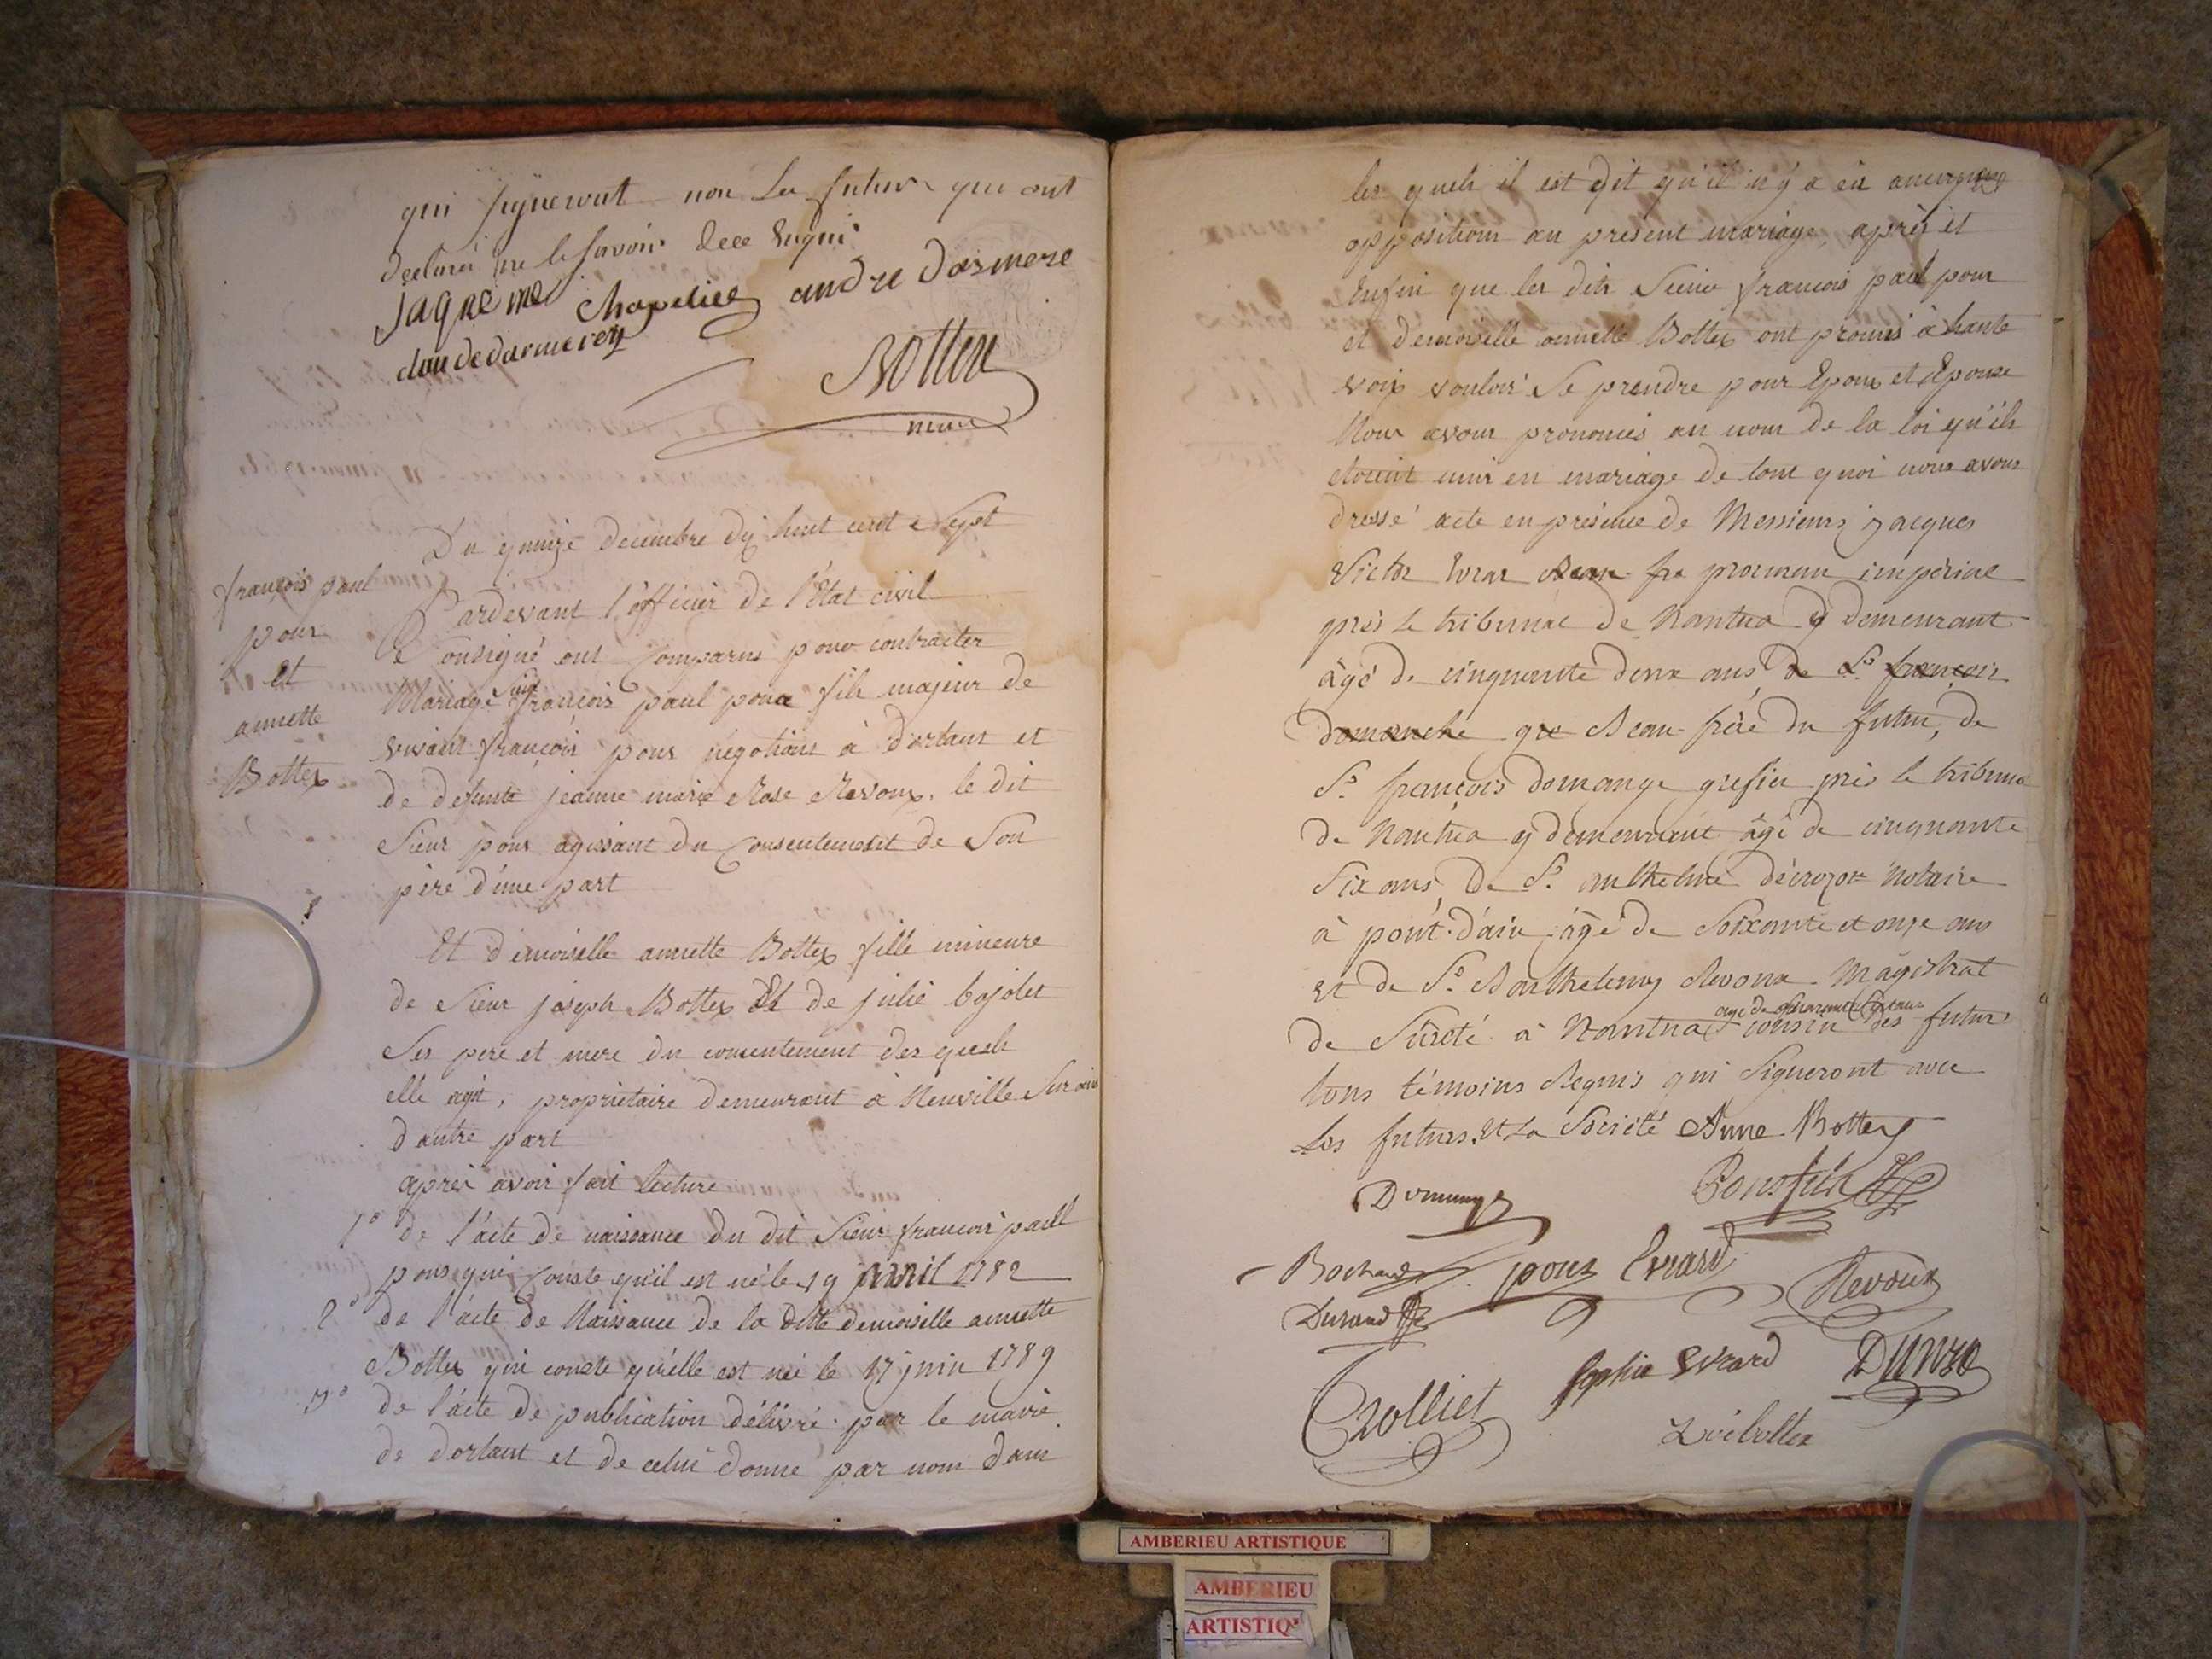 qui signeront non la future qui ont
declaré ne le savoir dece enquis
jaqueme chapelier andre darmere
claude darmerey
Bottex
maire
Du quinze decembre dix huit cent sept
françois paul
pour
et
annette
Bottex
Pardevant l'officier de l'état civil
Sousigné ont Comparus pour contracter
Mariage Sieur françois paul poux fils majeur de
vivant françois poux negotiant à dortant et
de defunte jeanne marie Rose Revoux, le dit
Sieur poux agissant du Consentement de Son
père d'une part
Et demoiselle annette Bottex fille mineure
de Sieur joseph Bottex Et de julie bojolet
Ses pere et mere du consentement des quels
elle agit, proprietaire demeurant à Neuville Sur ain
d'autre part
après avoir fait lecture
1° de l'acte de naissance du dit Sieur françois paul
poux qui Conste qu'il est né le 19 avril 1782
2° de l'acte de Naissance de la ditte demoiselle annette
Bottex qui conste qu'elle est née le 17 juin 1789
3° de l'acte de publication délivré par le maire
de dortant et de celui donné par nous dans
les quels il est dit qu'il n'y a eu aucunes
oppositions au présent mariage, après et
Enfin que les dits Sieur françois paul poux
et demoiselle annette Bottex ont promis à haute
voix vouloir Se prendre pour Epoux et Epouse
Nous avons prononcés au nom de la loi qu'ils
etoient unis en mariage de tout quoi nous avons
dressé acte en présence de Messieurs jacques
Victor Evrar procureur imperial
près le tribunal de Nantua y demeurant
âgé de cinquante deux ans de Sr françois
domanche gre Beau-frère du futur, de
Sr françois domange grefier près le tribunal
de Nantua y demeurant âgé de cinquante
Six ans, de Sr anthelme décrozot Notaire
à pont-d'ain âgé de Soixante et onze ans
et de Sr Barthelemy Revoux Magistrat
age de quarante Sept ans
de Sûreté à Nantua cousin des futurs
tous témoins Requis qui Signeront avec
Les futurs Et La Société Anne Bottex
Domange Pons fils
Bochard poux Evrard Revoux
Durand
Crolliet Sophie Evrard
Zoé bottex
AMBERIEU ARTISTIQUE
AMBERIEU
ARTISTIQ